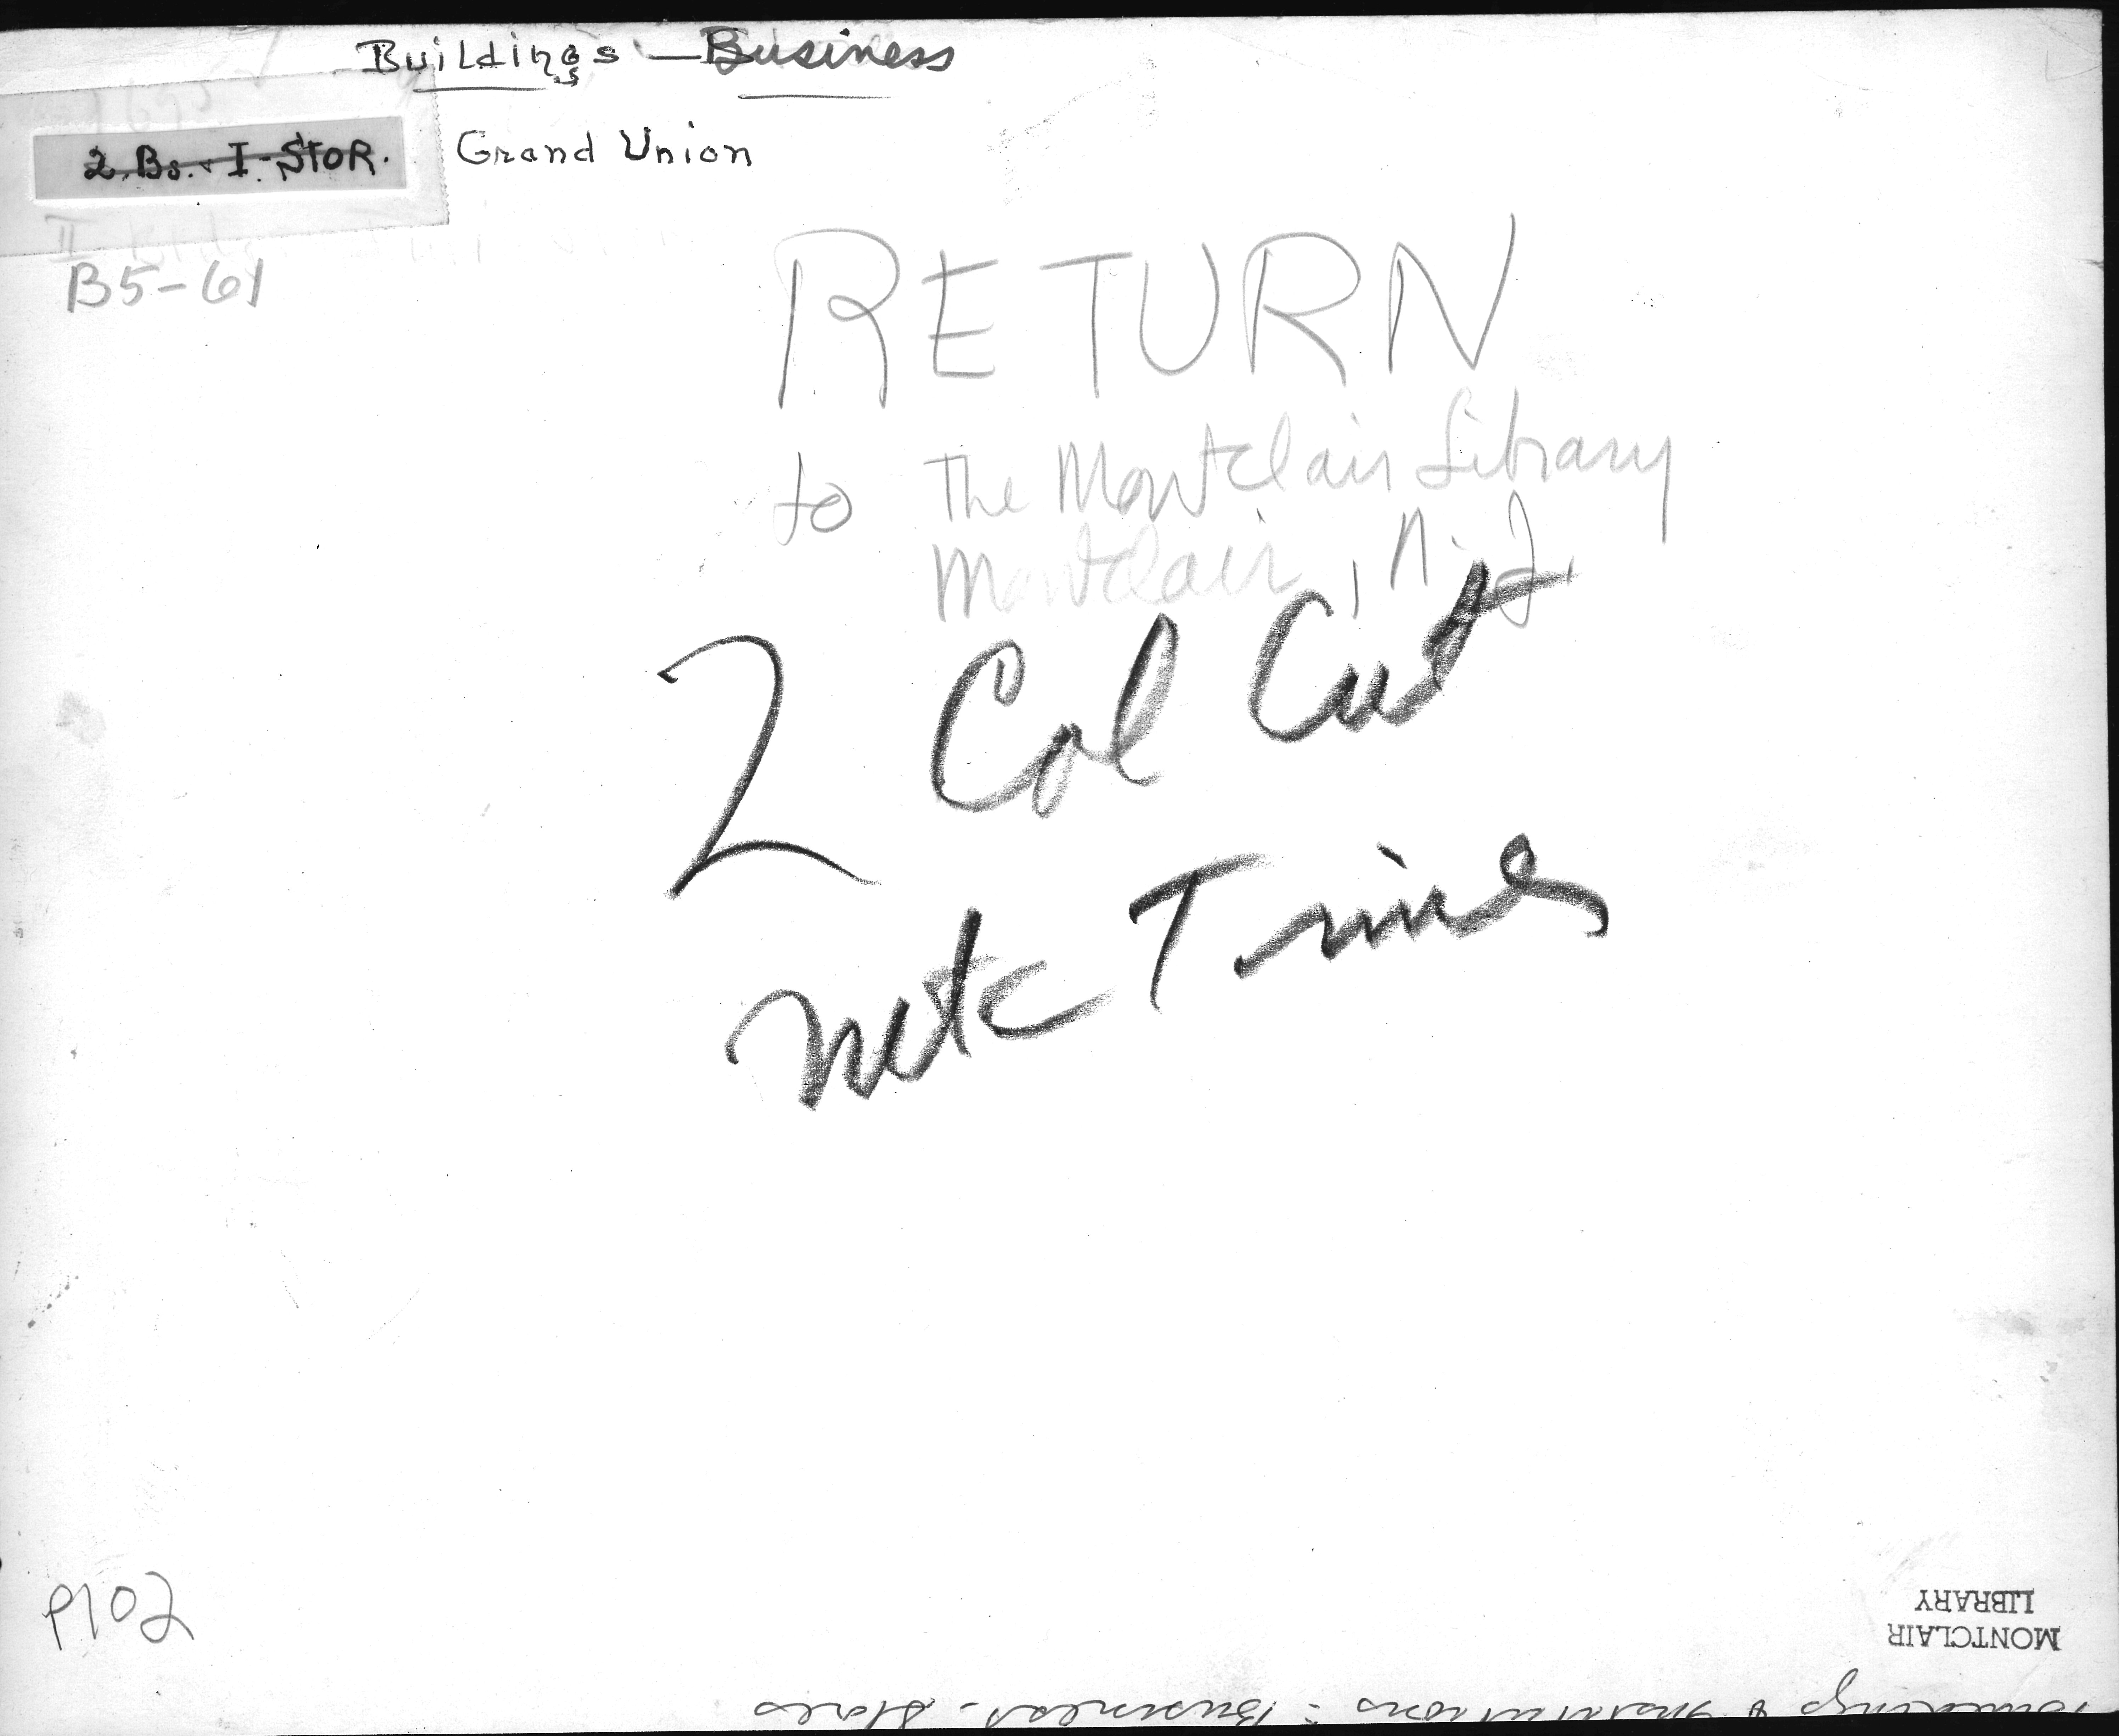 Buildings — Business
2. Bs. & I - StoR.
Grand Union
B5-61
RETURN
to The Montclair Library
Montclair, N.J.
2 Col Cut
Times
P102
MONTCLAIR
LIBRARY
Buildings & Institutions: Business - Stores